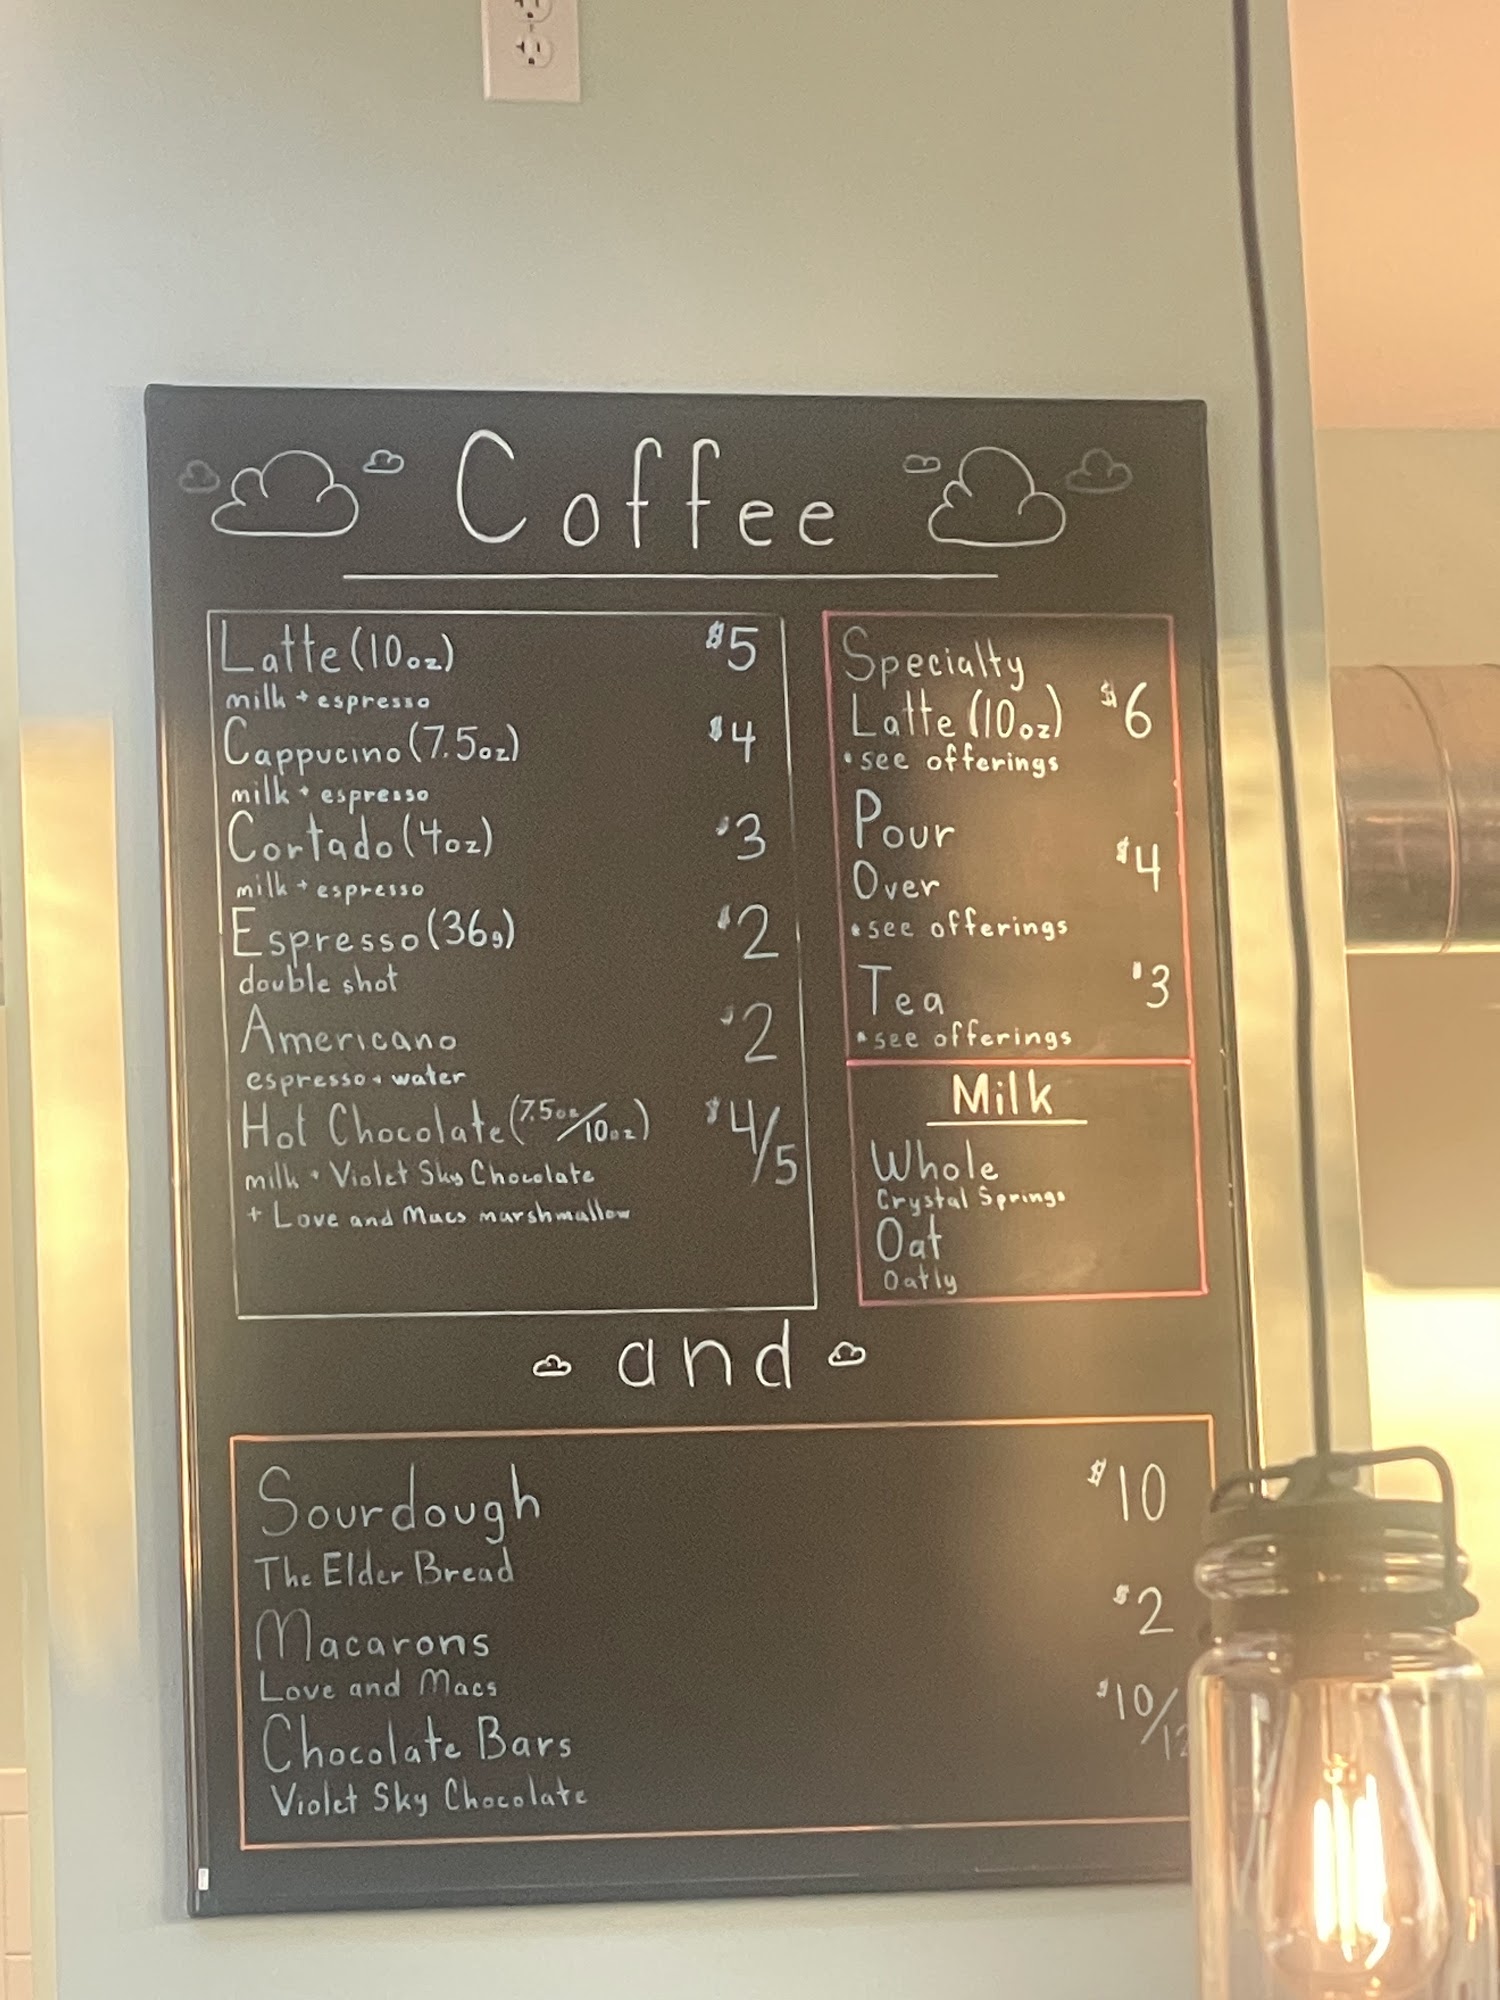 Coffee
Latte (10oz) $5
milk + espresso
Cappucino (7.5oz) $4
milk + espresso
Cortado (4oz) $3
milk + espresso
Espresso (36g) $2
double shot
Americano $2
espresso + water
Hot Chocolate (7.5oz/10oz) $4/5
milk + Violet Sky Chocolate
+ Love and Macs marshmallow
Specialty
Latte (10oz) $6
*see offerings
Pour
Over $4
*see offerings
Tea $3
*see offerings
Milk
Whole
Crystal Springs
Oat
Oatly
and
Sourdough $10
The Elder Bread
Macarons $2
Love and Macs
Chocolate Bars $10/12
Violet Sky Chocolate